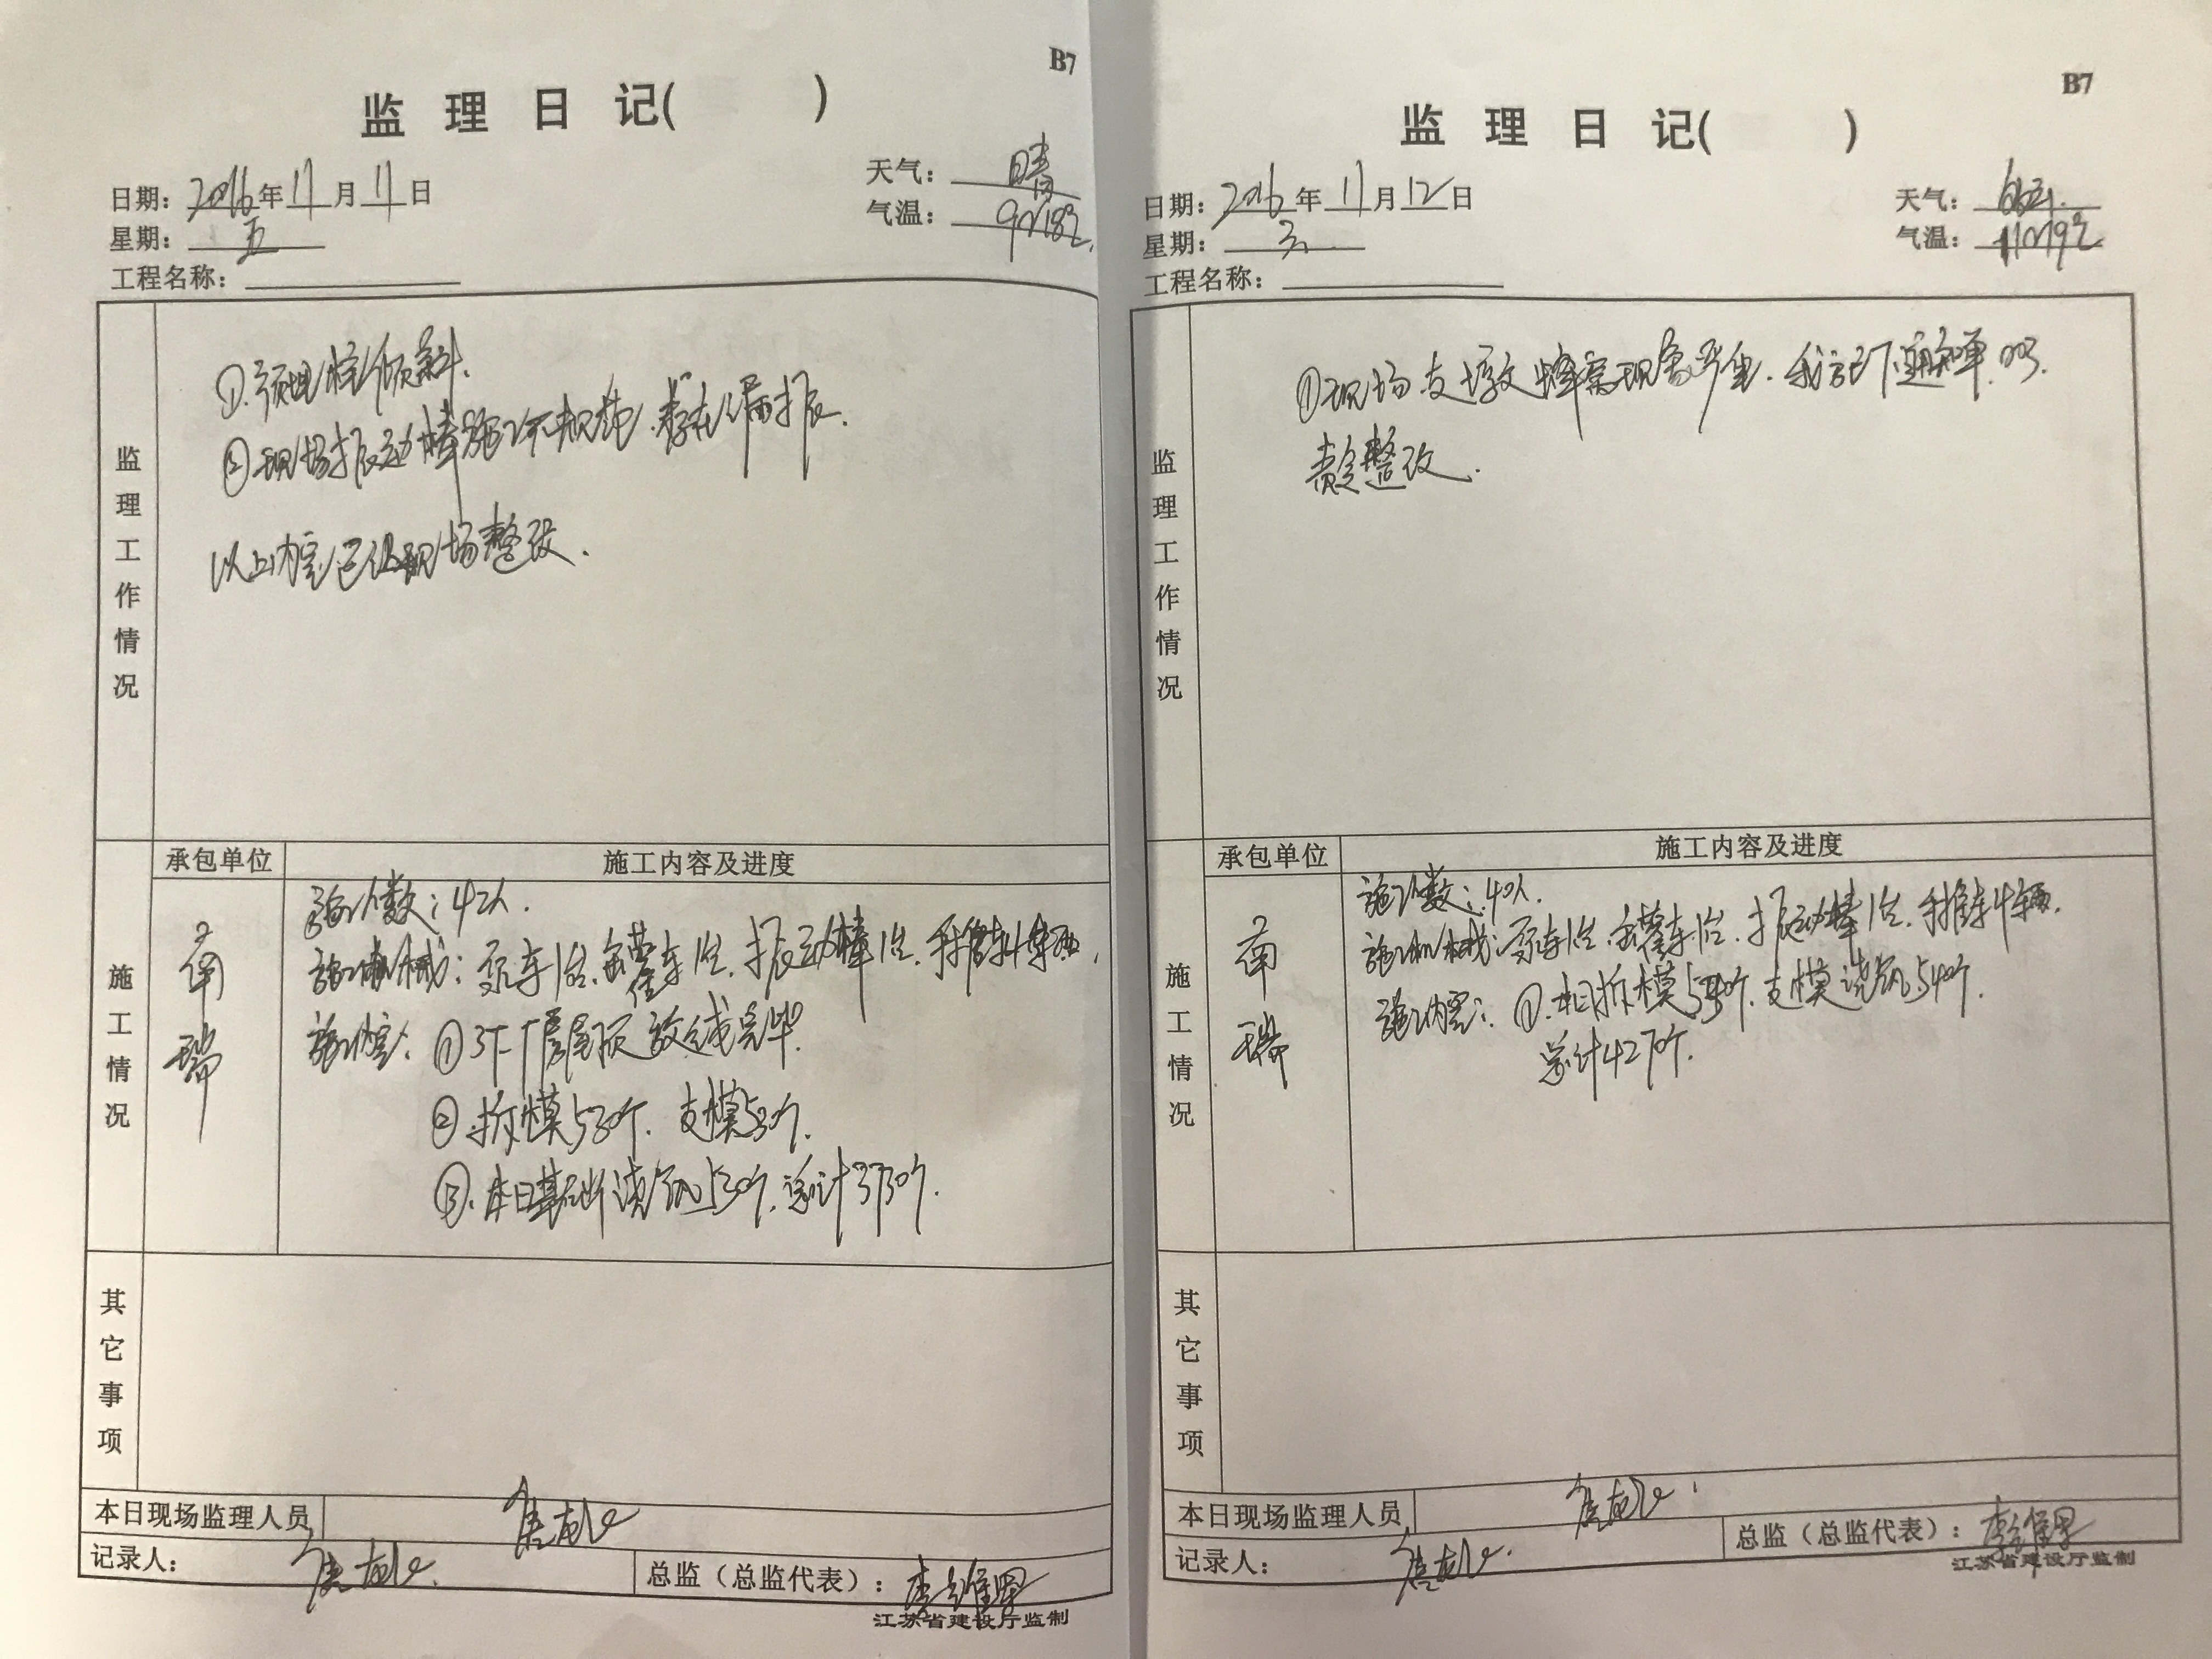 B7
监理日记( )
日期：2016年11月11日
天气：晴
星期：五
气温：9~18℃
工程名称：
监理工作情况
①.预埋桩倾斜.
②现场振动棒施工不规范.存在漏振.
以上内容已让现场整改.
施工情况
承包单位
施工内容及进度
南瑞
施工人数：42人.
施工机械：泵车1台.罐车1台.振动棒1台.手推车4辆.
施工内容：①3#厂房屋顶放线完毕.
②拆模530个.支模530个.
③.本日基础浇筑530个.总计3730个.
其它事项
本日现场监理人员
记录人：
总监（总监代表）：李维
江苏省建设厅监制
B7
监理日记( )
日期：2016年11月12日
天气：
星期：
气温：11~19℃
工程名称：
监理工作情况
①现场支墩蜂窝现象严重.我方已下通知单.003.
责令整改.
施工情况
承包单位
施工内容及进度
南瑞
施工人数：40人.
施工机械：泵车1台.罐车1台.振动棒1台.手推车4辆.
施工内容：①.本日拆模540个.支模浇筑540个.
总计4270个.
其它事项
本日现场监理人员
记录人：
总监（总监代表）：李维
江苏省建设厅监制